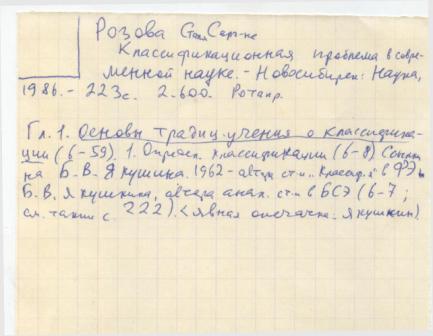 Розова Стал. Серг-не
Классификационная проблема в совре-
менной науке. - Новосибирск: Наука,
1986. - 223с. 2.600. Ротапр.
Гл. 1. Основы традиц. учения о классифика-
ции (6-59). 1. Опросн. классификации (6-8) Ссылки
на Б. В. Якушина. 1962 - автор ст-и „Классиф.я" в ФЭ, и
Б. В. Якушкина, автора анал. ст-и в БСЭ (6-7;
см. также с. 222). <явная опечатка: Якушкин).